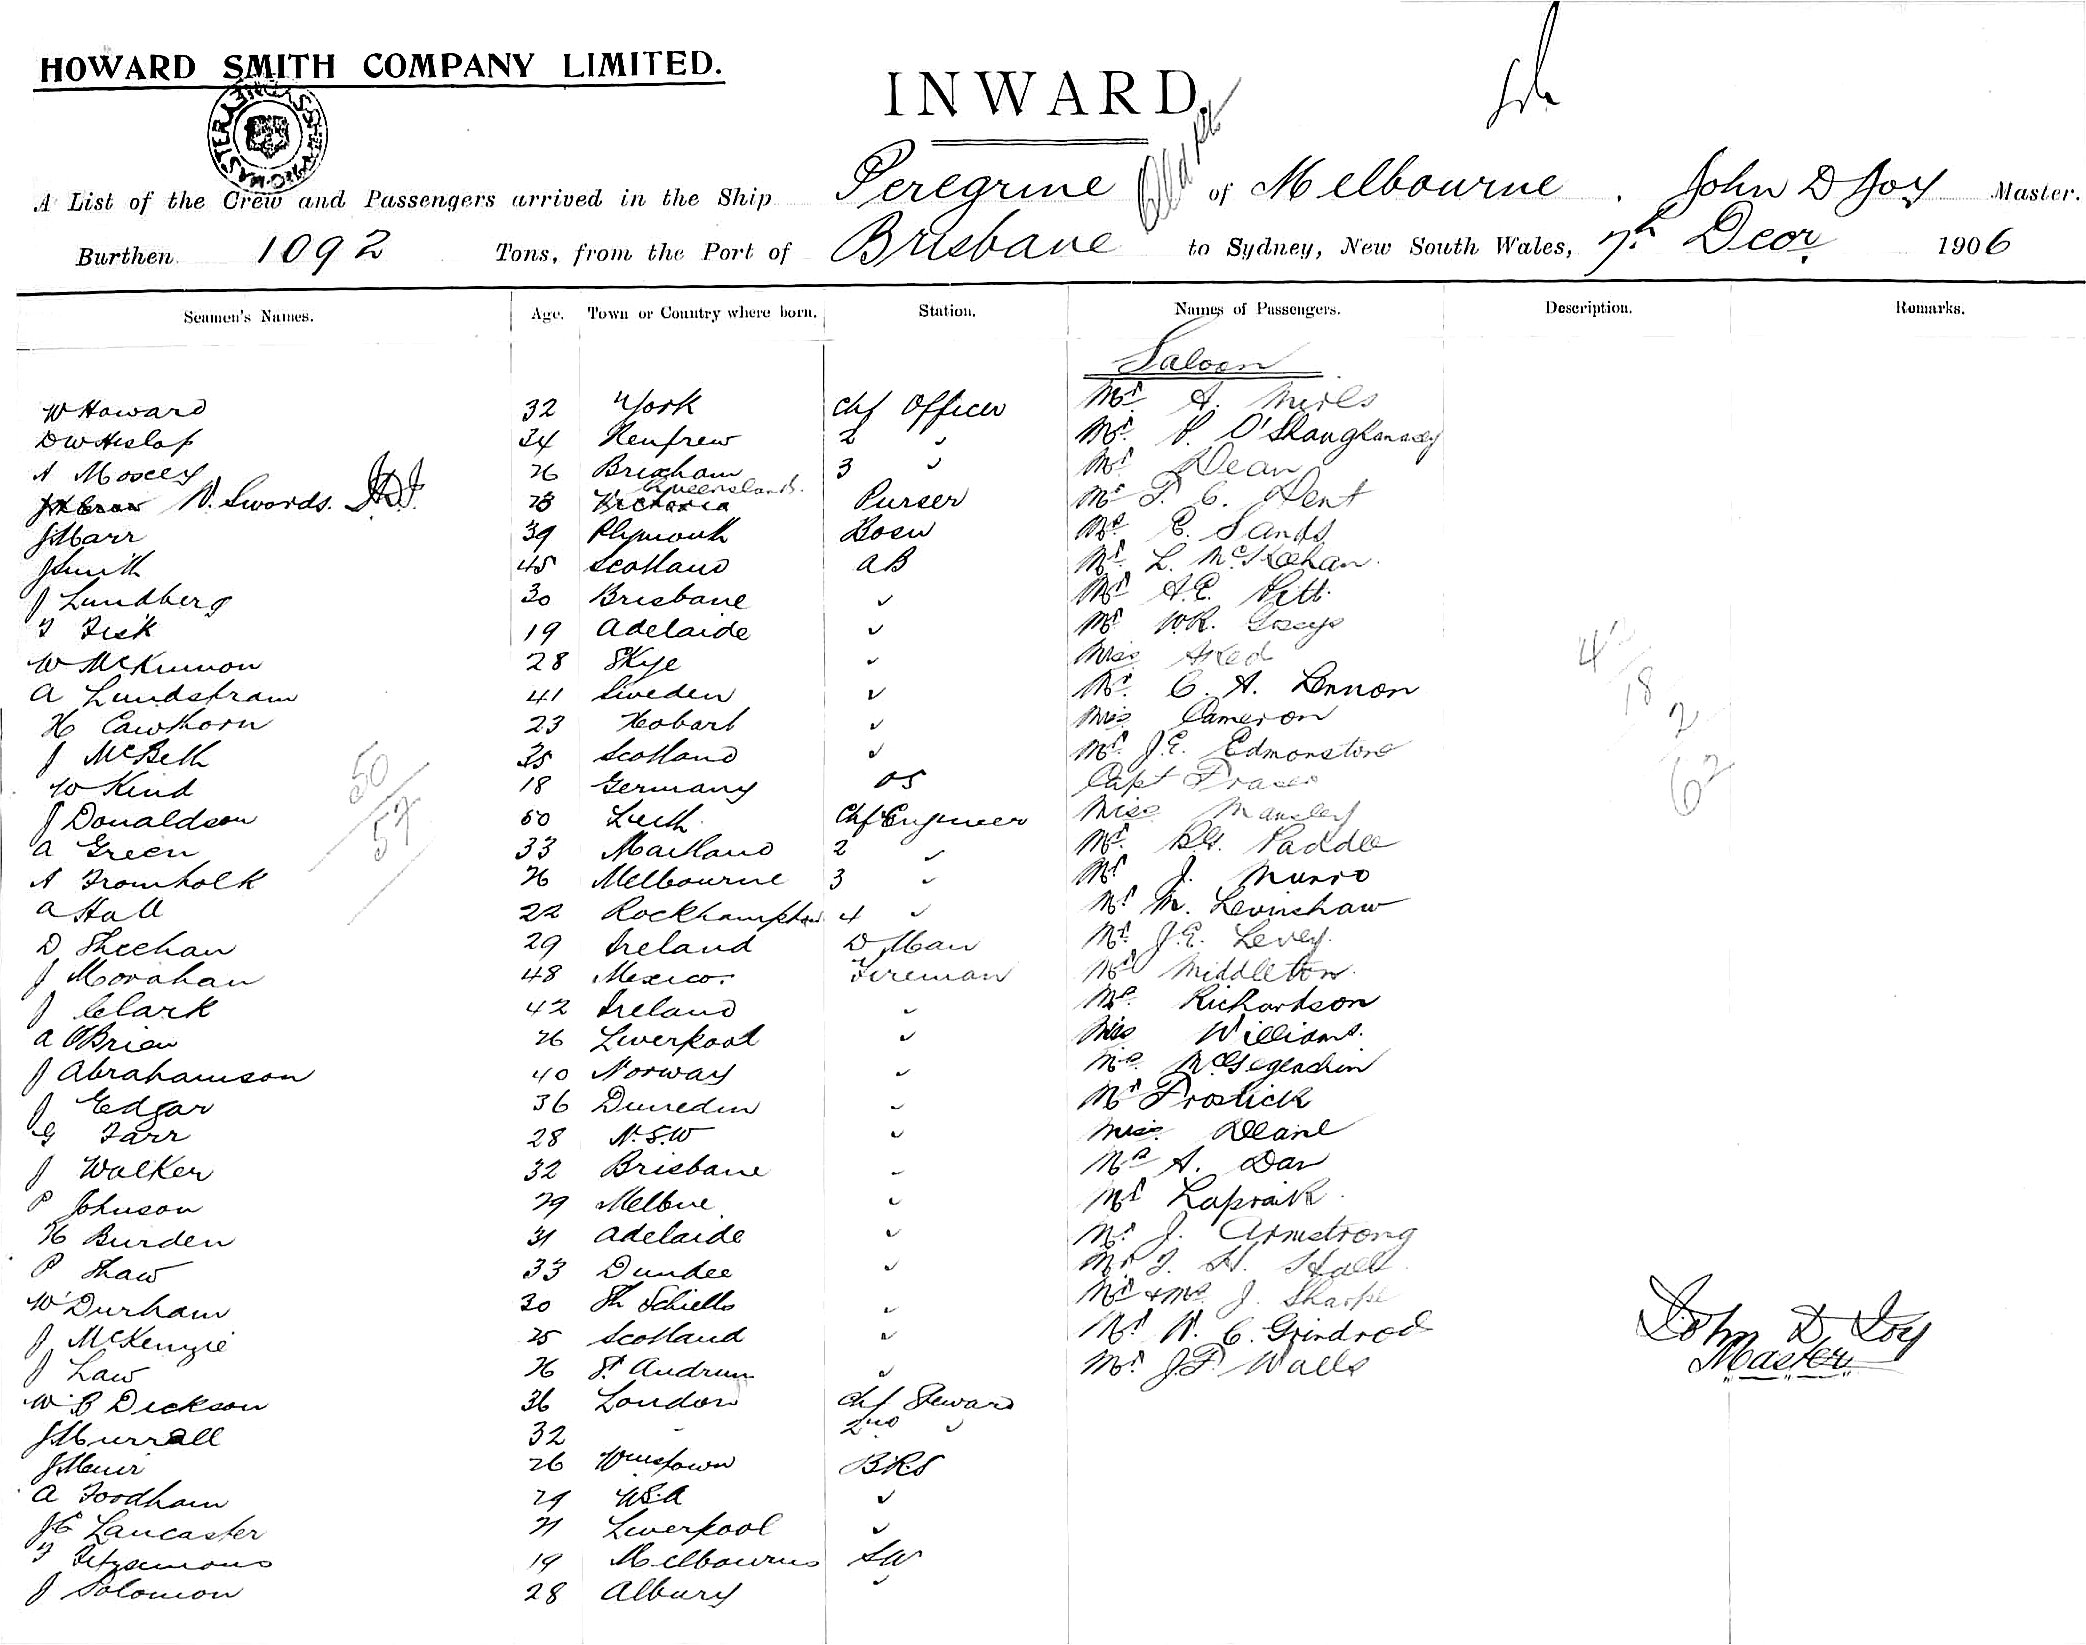 HOWARD SMITH COMPANY LIMITED.
INWARD.
A List of the Crew and Passengers arrived in the Ship Peregrine of Melbourne. John D Joy Master.
Burthen 1092 Tons, from the Port of Brisbane to Sydney, New South Wales, 7th Decr. 1906
Seamen's Names. Age. Town or Country where born. Station. Names of Passengers. Description. Remarks.
Saloon
W Howard 32 York Chf Officer Mr A. Mirls
D W Hislop 34 Renfrew 2 " Mr. P. O'Shaughnassy
A Mosely 26 Brixham 3 " Mr Dean
W. Swords. JDJ. 28 Victoria Queensland. Purser Mr F. C. Dent
J Marr 39 Plymouth Bosn Mrs E. Sands
J Smith 45 Scotland AB Mr. L. McKeehan.
J Lundberg 30 Brisbane " Mr A.E. Pitt.
T Fisk 19 Adelaide " Mr W.R.
W McKinnon 28 Skye " Miss
A Lundstram 41 Sweden " Mr. C. A. Lennon
H Cawthorn 23 Hobart " Miss Cameron
J McBeth 35 Scotland " Mr. J.E. Edmonstone
W Kind 18 Germany OS Capt Fraser
J Donaldson 50 Leith Chf Engineer Miss Mansley
A Green 33 Maitland 2 " Mr. Paddle
A Tromholk 26 Melbourne 3 " Mr J. Munro
A Hall 22 Rockhampton 4 " Mr M. Levinshaw
D Sheehan 29 Ireland D Man Mr. J.E. Levey.
J Morahan 48 Mexico. Fireman Mr Middleton.
J Clark 42 Ireland " Mr. Richardson
A O'Brien 26 Liverpool " Miss Williams.
J Abrahamson 40 Norway " Mrs McGegeachin
J Edgar 36 Dunedin " Mr Frostick
G Farr 28 N.S.W " Miss. Deane
J Walker 32 Brisbane " Mrs A. Dav
P Johnson 29 Melbne " Mr Lapraik.
H Burden 31 Adelaide " Mr J. Armstrong
P Shaw 33 Dundee " Mr F. H. Hall.
W Durham 30 Sh Schiells " Mr & Mrs J. Sharpe
J McKenzie 25 Scotland " Mr W. C. Grindrod
J Law 26 St Andrews " Mr J.F. Walls
W B Dickson 36 London Chf Steward
J Murrall 32 " 2nd "
J Muir 26 Wmstown BRS
A Foordham 29 USA "
J C Lancaster 21 Liverpool "
T Fitzsimons 19 Melbourne SW
J Solomon 28 Albury "
50
57
42
18
2
62
John D. Joy
Master